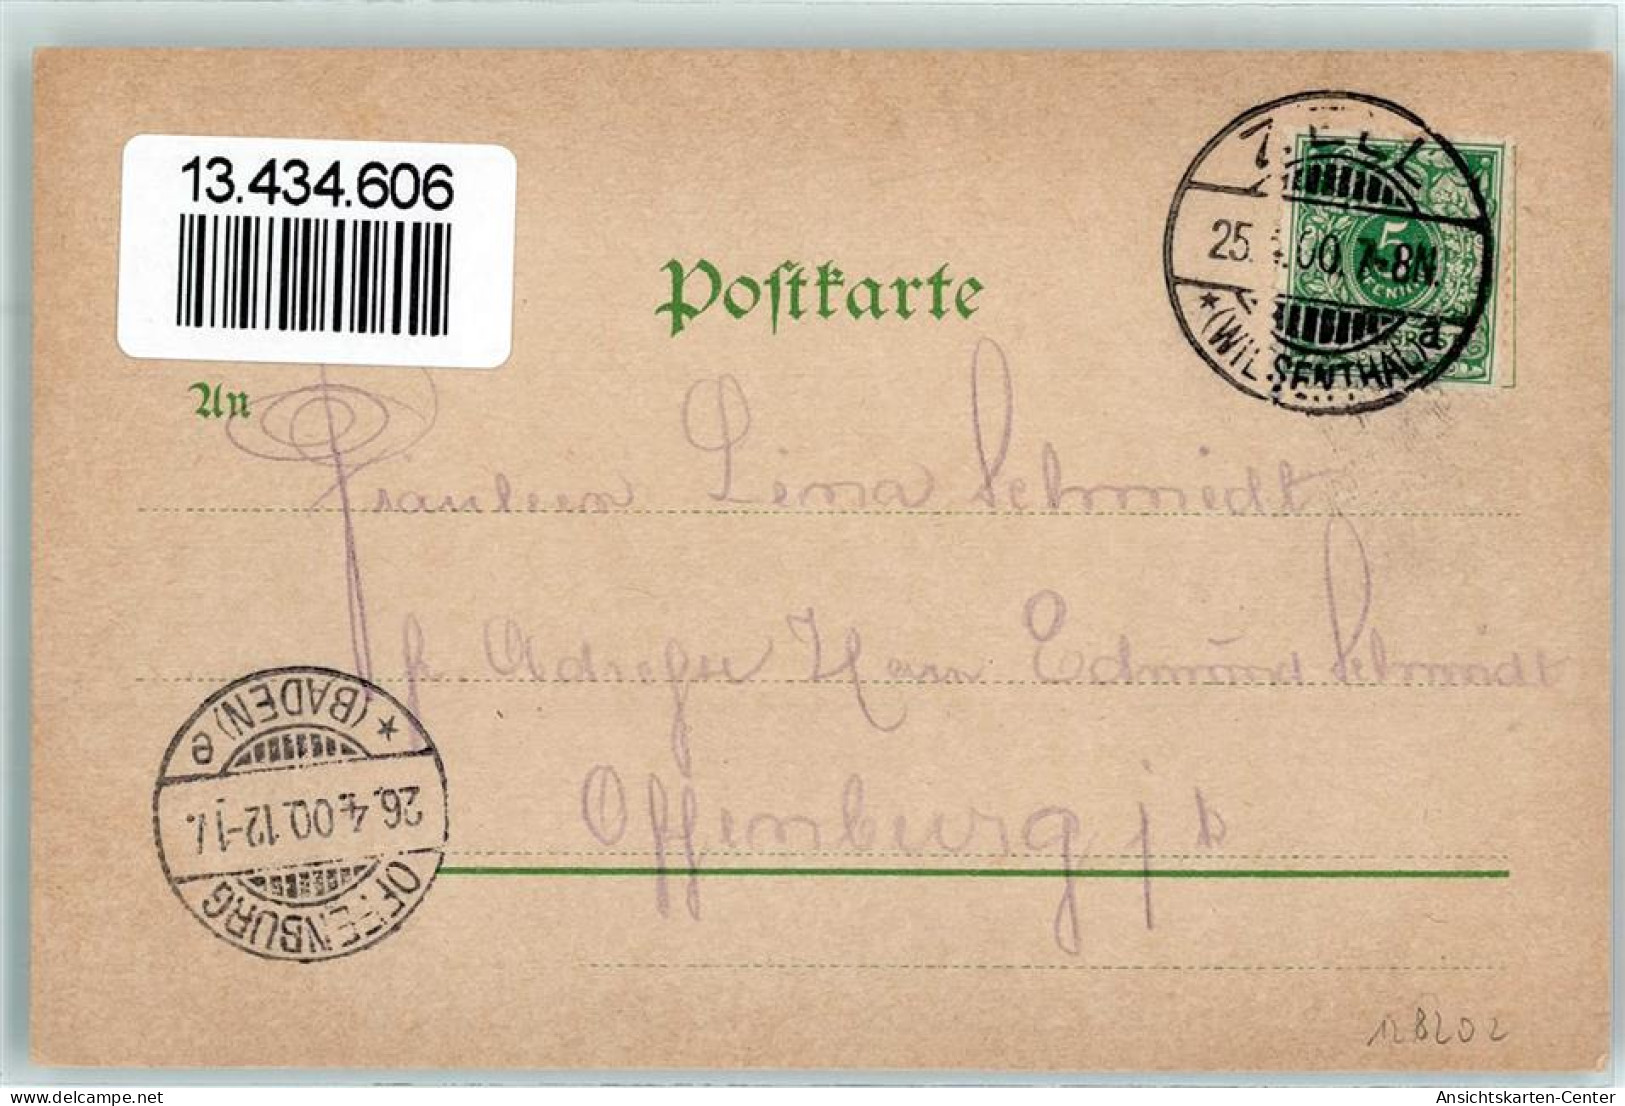 13.434.606
Postkarte
An
ZELL
25.4.00.7-8N.
a
* (WIESENTHAL)
5
PFENNIG
Fräulein Lina Schmidt
Adresse Herrn Edmund Schmidt
Offenburg i/b
* (BADEN) e
26.4.00.12-1
OFFENBURG
128202
Ansichtskarten-Center